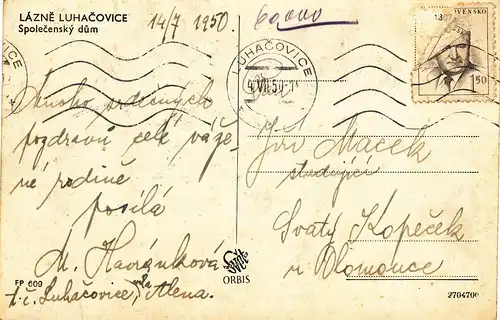 LÁZNĚ LUHAČOVICE
Společenský dům
14/7 1950
LUHAČOVICE
VENSKO
1,50
Mnoho srdečných
pozdravů celé váže-
né rodině
posílá
M. Havránková
t. č. Luhačovice, Alena.
Jiří Macek
studující
Svatý Kopeček
u Olomouce
Svět
ORBIS
FP 609
2704700